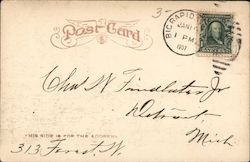 3-
Post Card
BIG RAPIDS
JAN
1 PM
1907
Chas N. Findlater Jr
Detroit,
THIS SIDE IS FOR THE ADDRESS
Mich
313 Forest W.